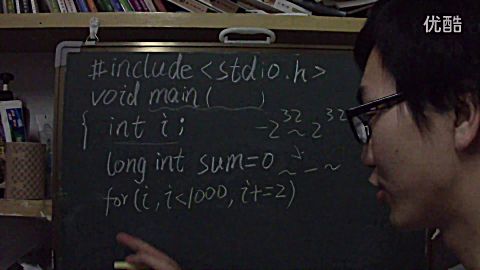 优酷
#include <stdio.h>
void main( )
{ int i;
-2^32 ~ 2^32
long int sum=0
~ - ~
for(i, i<1000, i+=2)